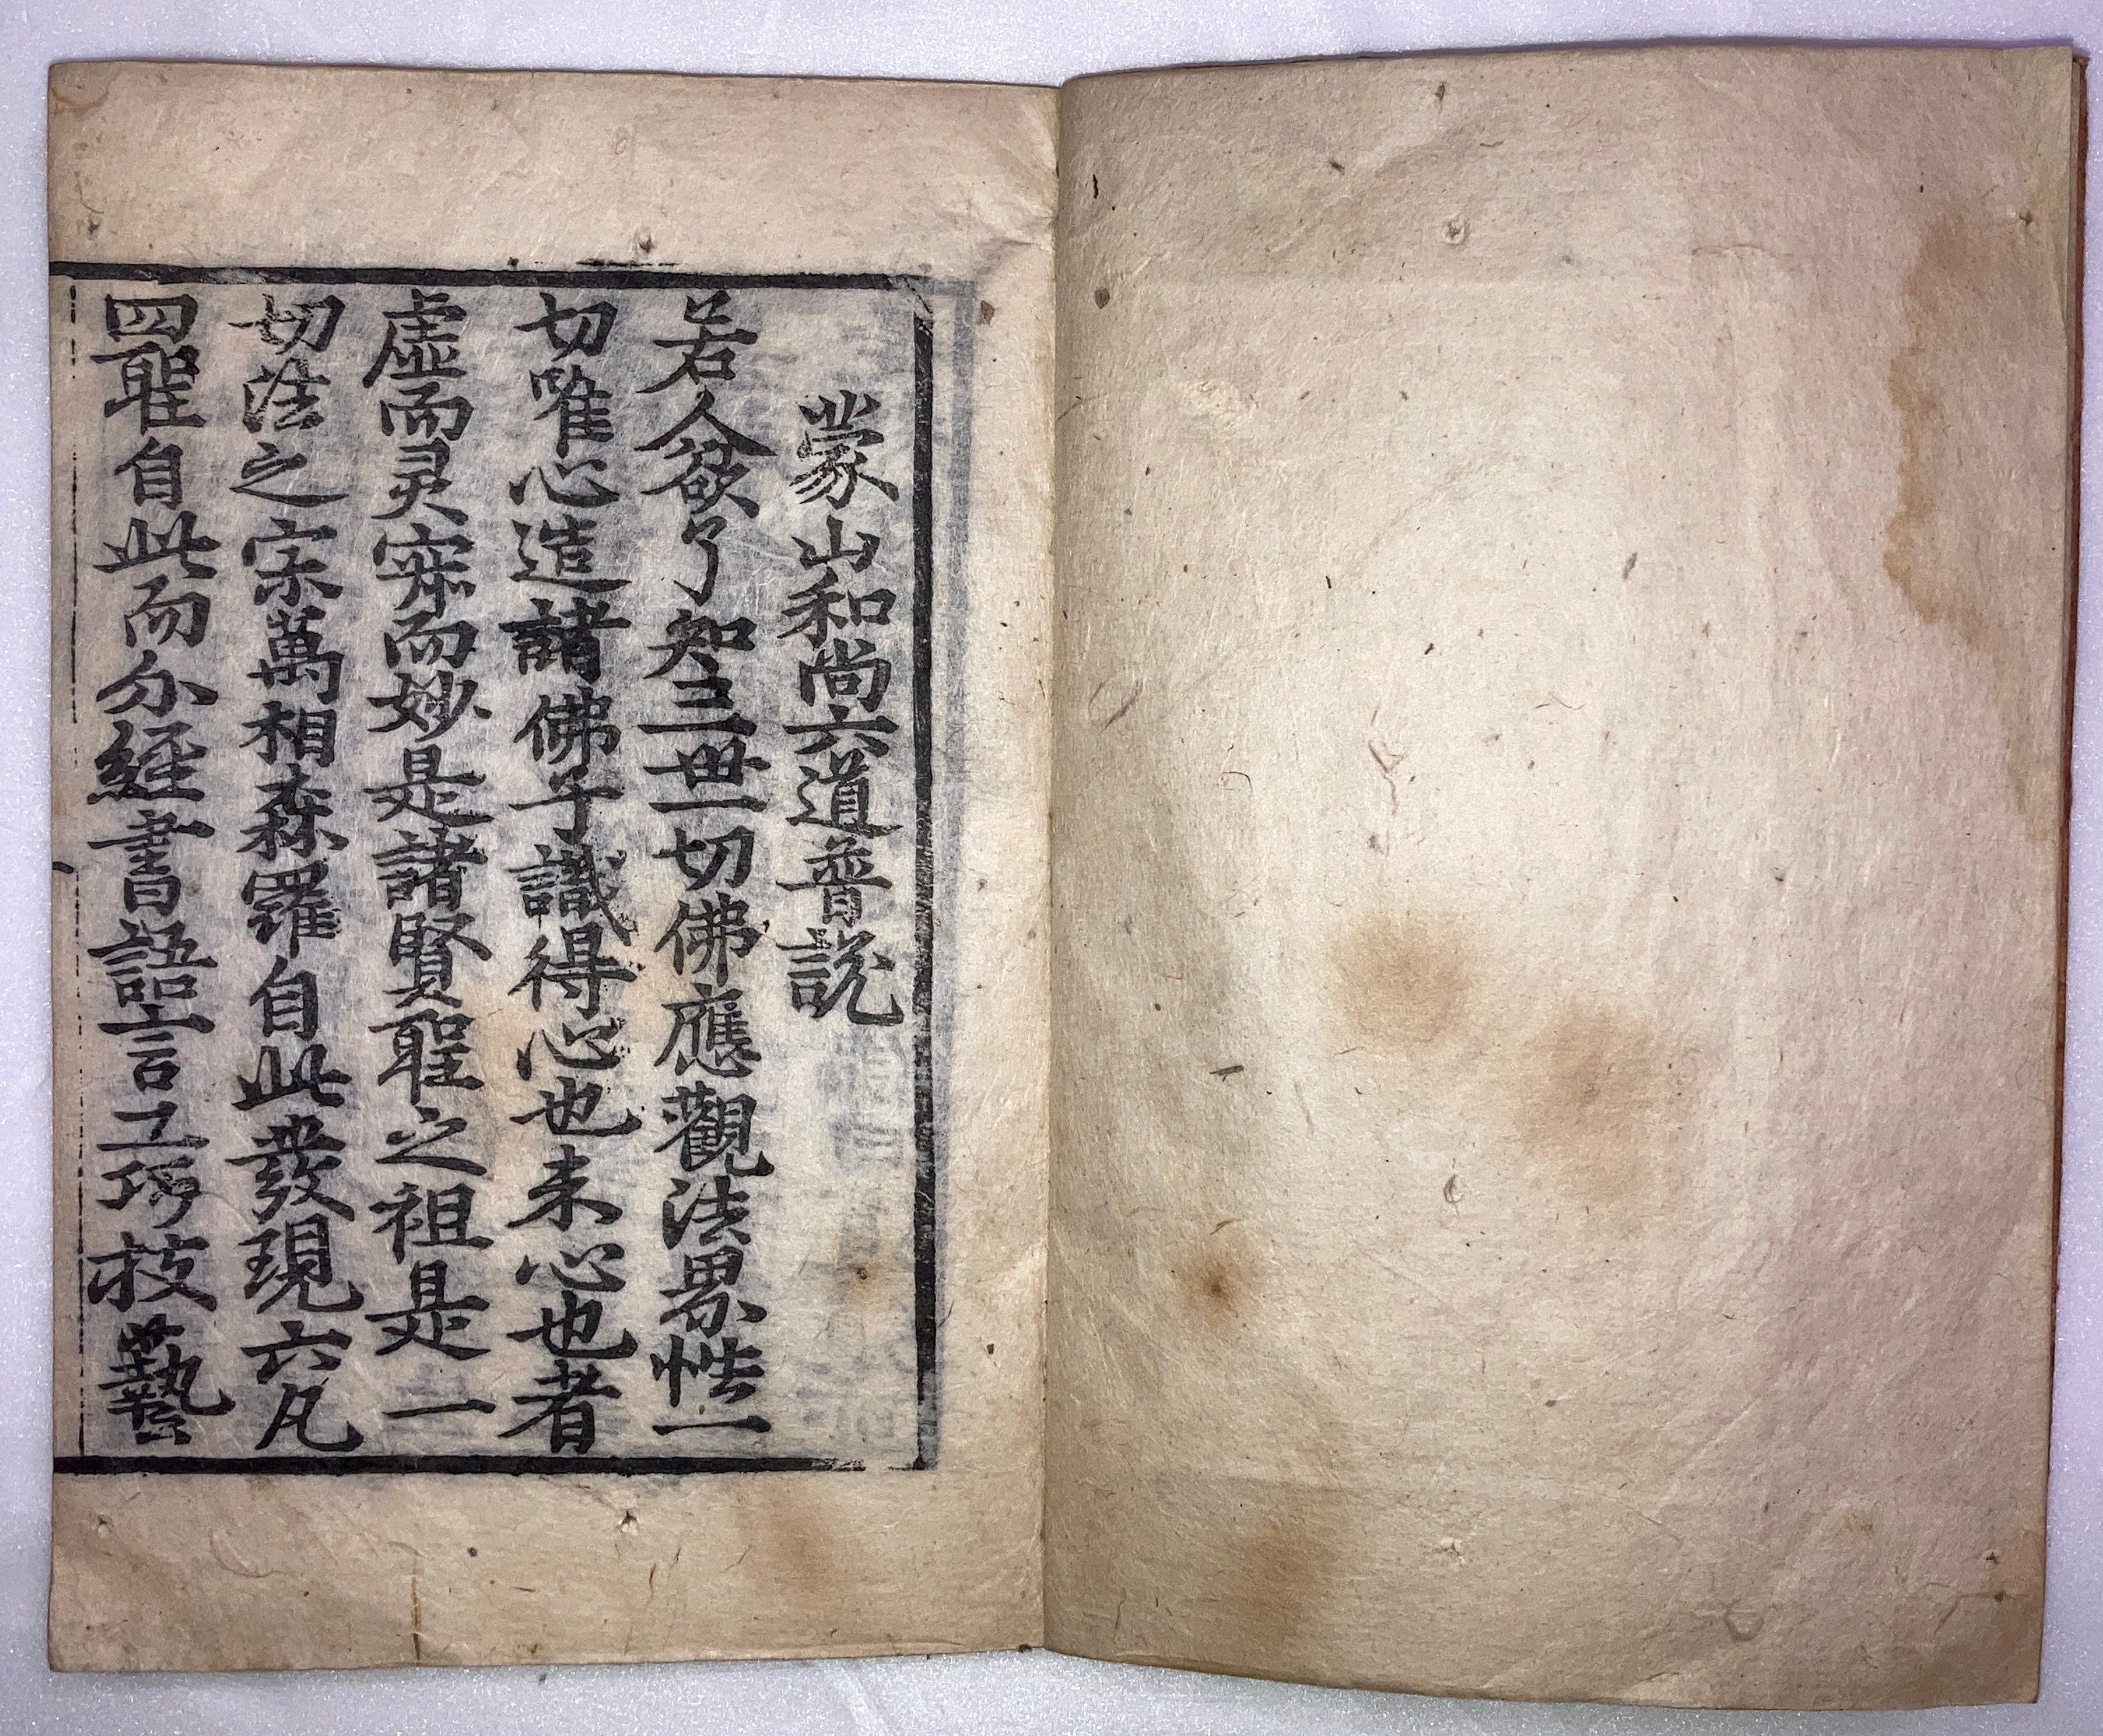 蒙山和尚六道普說
若人欲了知三世一切佛應觀法界性一
切唯心造諸佛子識得心也未心也者
虛而灵寂而妙是諸賢聖之祖是一
切法之宗萬相森羅自此發現六凡
四聖自此而分經書語言工巧技藝